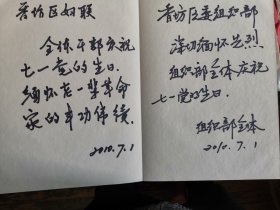 晋坊区妇联
全体干部庆祝
七一党的生日
缅怀老一辈革命
家的丰功伟绩.
2010.7.1
晋坊区委组织部
深切缅怀先烈
组织部全体庆祝
七一党的生日.
组织部全体
2010.7.1